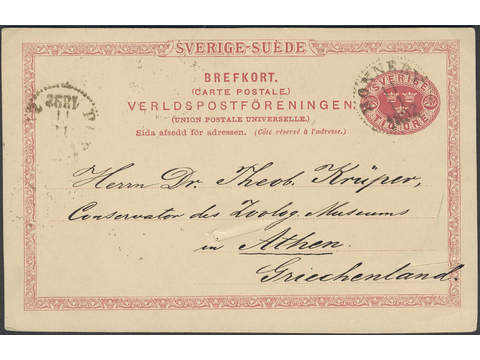 SVERIGE-SUÈDE
BREFKORT.
(CARTE POSTALE.)
VERLDSPOSTFÖRENINGEN
(UNION POSTALE UNIVERSELLE.)
Sida afsedd för adressen. (Côté réservé à l'adresse.)
SVERIGE
TIO ÖRE
RONNEBY
Herrn Dr. Theob. Krüper,
Conservator des Zoolog. Museums
in Athen.
Griechenland.